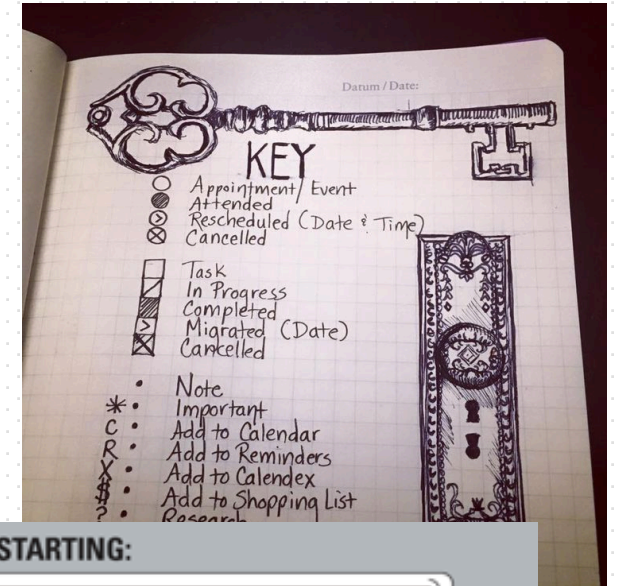 Datum / Date:
KEY
Appointment/Event
Attended
Rescheduled (Date & Time)
Cancelled
Task
In Progress
Completed
Migrated (Date)
Cancelled
• Note
* • Important
C • Add to Calendar
R • Add to Reminders
X • Add to Calendex
$ • Add to Shopping List
? • Research
STARTING: